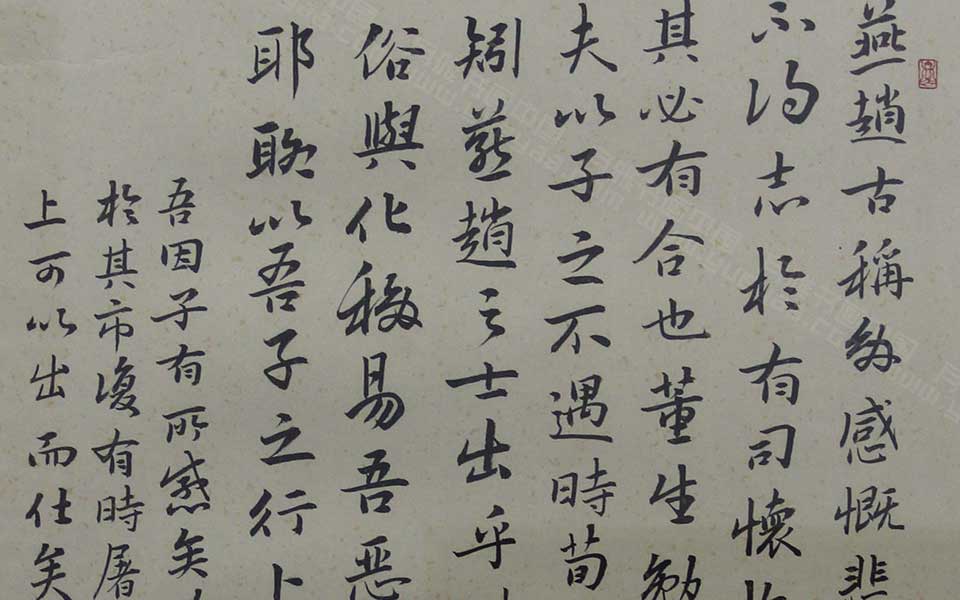 燕趙古稱多感慨悲
不得志於有司懷
其必有合也董生勉
夫以子之不遇時苟
矧燕趙之士出乎
俗與化移易吾惡
耶聊以吾子之行卜
吾因子有所感矣
於其市復有時屠
上可以出而仕矣